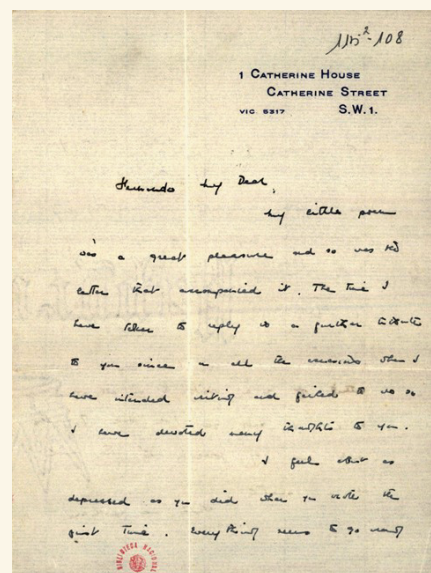 115²-108
1 CATHERINE HOUSE
CATHERINE STREET
VIC. 5317 S.W.1.
my Dear,
my little poem
was a great pleasure and so was the
letter that accompanied it. The time I
have taken to reply is a further tribute
to you since on all the occasions when I
have intended writing and failed to do so
I have devoted many thoughts to you.
I feel about as
depressed as you did when you wrote the
first time. Everything seems to go
BIBLIOTECA NACIONAL